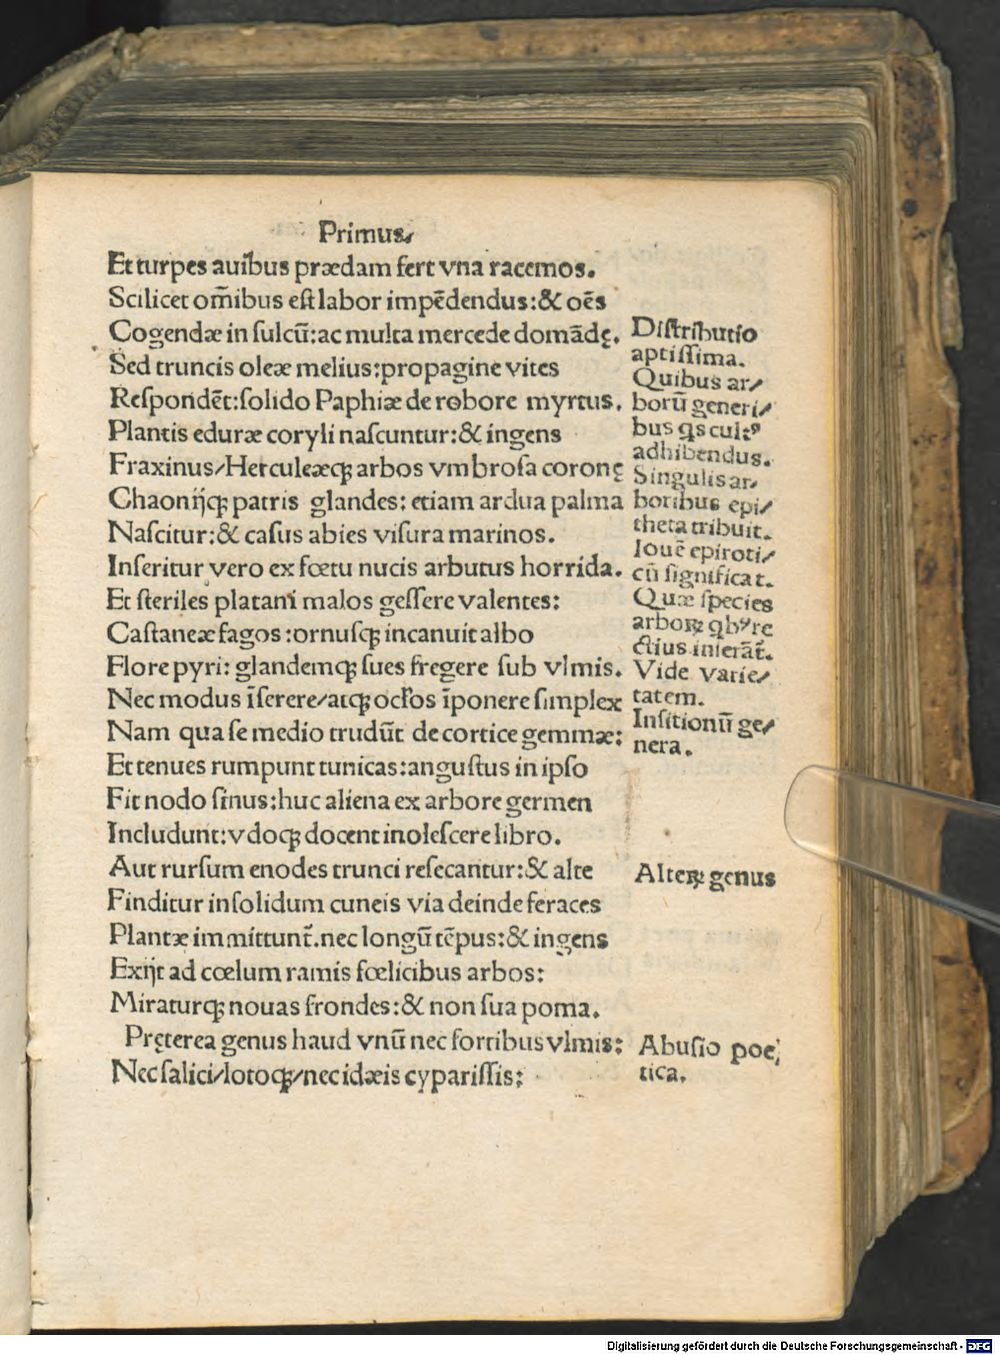 Primus⸝
Et turpes auibus prædam fert vna racemos.
Scilicet om̄ibus eſt labor impēdendus:& oēs
Cogendæ in ſulcū:ac multa mercede domādę.
Sed truncis oleæ melius:propagine vites
Reſpondēt:ſolido Paphiæ de robore myrtus.
Plantis eduræ coryli naſcuntur:& ingens
Fraxinus/Herculeæqꝫ arbos vmbroſa coronę
Chaonijqꝫ patris glandes: etiam ardua palma
Naſcitur:& caſus abies viſura marinos.
Inſeritur vero ex fœtu nucis arbutus horrida.
Et ſteriles platani malos geſſere valentes:
Caſtaneæ fagos:ornuſqꝫ incanuit albo
Flore pyri: glandemqꝫ ſues fregere ſub vlmis.
Nec modus īſerere/atqꝫ oc̄los īponere ſimplex
Nam qua ſe medio trudūt de cortice gemmæ:
Et tenues rumpunt tunicas:anguſtus in ipſo
Fit nodo ſinus:huc aliena ex arbore germen
Includunt:vdoqꝫ docent inoleſcere libro.
Aut rurſum enodes trunci reſecantur:& alte
Finditur in ſolidum cuneis via deinde feraces
Plantæ immittunt̄.nec longū tēpus:& ingens
Exijt ad cœlum ramis fœlicibus arbos:
Miraturqꝫ nouas frondes:& non ſua poma.
Pręterea genus haud vnū nec fortibus vlmis:
Nec ſalici/lotoqꝫ/nec idæis cypariſſis:
Diſtributio
aptiſſima.
Quibus ar/
borū generi/
bus qs cultꝰ
adhibendus.
Singulis ar/
boribus epi/
theta tribuit.
Iouē epiroti/
cū ſignificat.
Quæ ſpecies
arboꝝ qbꝰ re
ctius inſerāt̄.
Vide varie/
tatem.
Inſitionū ge/
nera.
Alteꝝ genus
Abuſio poe/
tica.
Digitalisierung gefördert durch die Deutsche Forschungsgemeinschaft - DFG